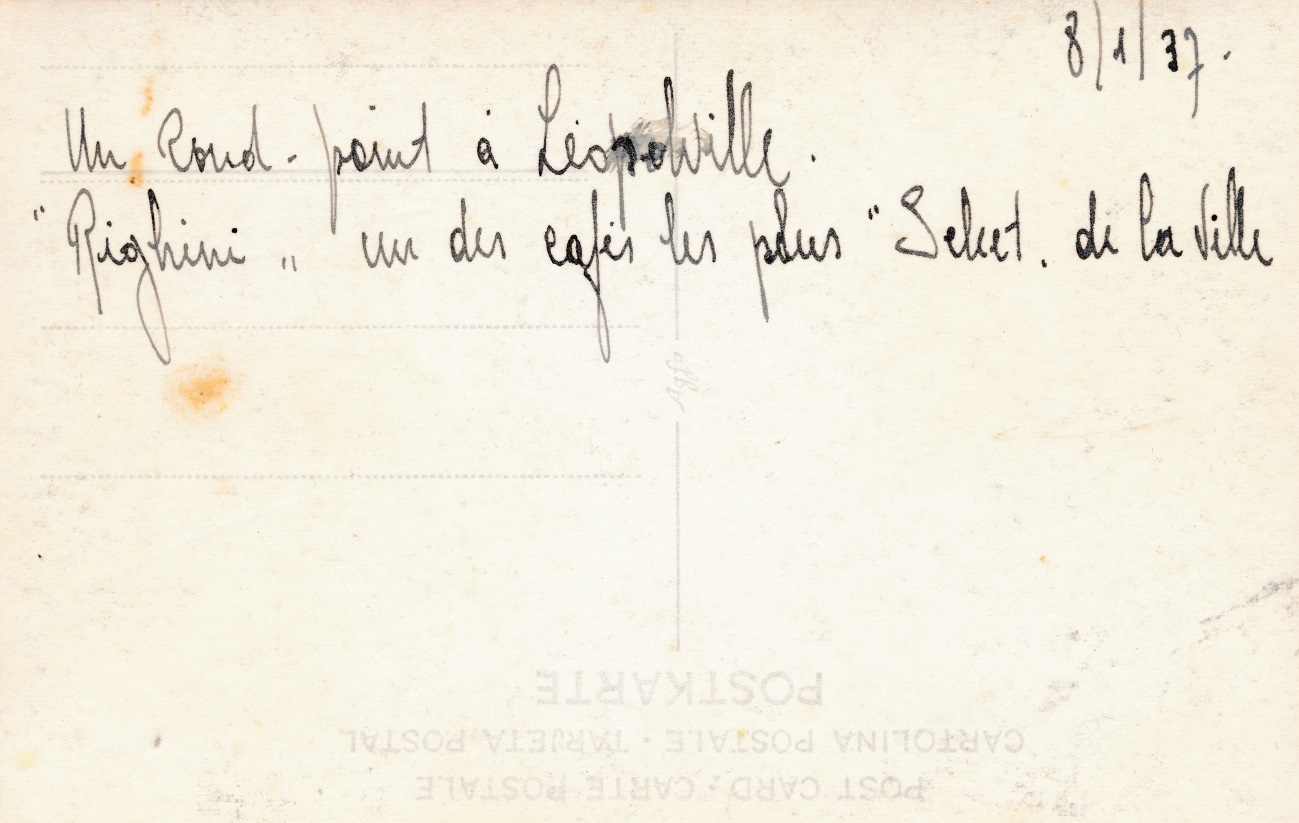 8/1/37.
Un Rond-point à Léopolville.
"Righini„ un des cafés les plus "Select. de la ville
POSTKARTE
CARTOLINA POSTALE · TARJETA POSTAL
POST CARD · CARTE POSTALE